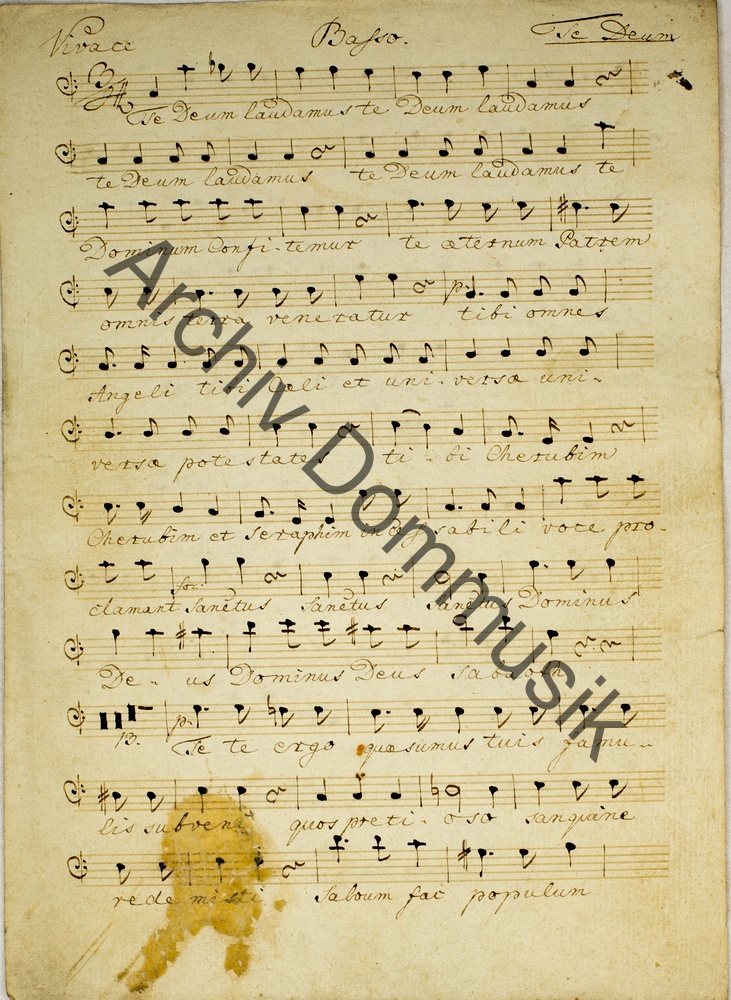 Vivace Basso. Te Deum
Te Deum laudamus te Deum laudamus
te Deum laudamus te Deum laudamus te
Dominum Confi-temur te æternum Patrem
omnis terra veneratur p. tibi omnes
Angeli tibi Cæli et uni-versæ uni-
versæ potestates ti-bi Cherubim
Cherubim et Seraphim incessabili voce pro-
clamant for: Sanctus Sanctus Sanctus Dominus
De-us Dominus Deus Sabaoth
13. p. Te te ergo quæsumus tuis famu-
lis subveni quos preti-oso sanguine
redemisti Salvum fac populum
Archiv Dommusik